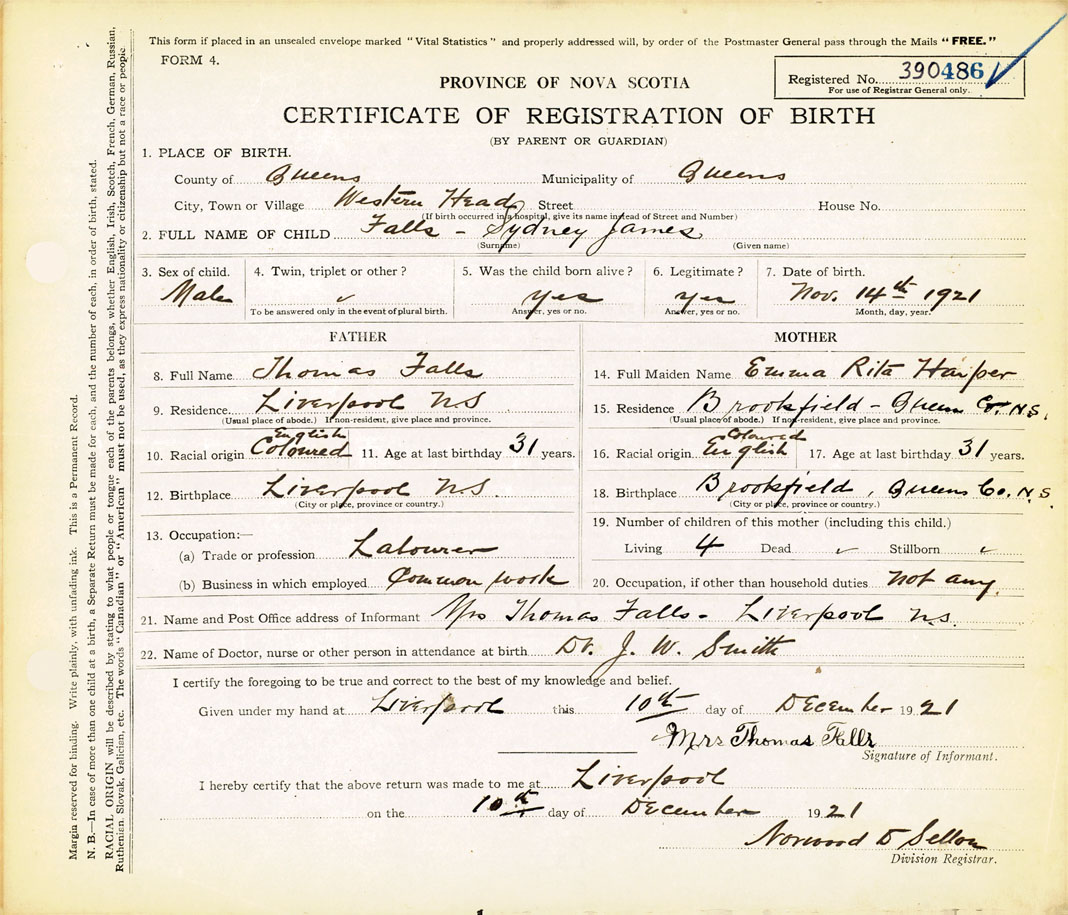 This form if placed in an unsealed envelope marked "Vital Statistics" and properly addressed will, by order of the Postmaster General pass through the Mails "FREE."
FORM 4.
Registered No. 390486
For use of Registrar General only.
PROVINCE OF NOVA SCOTIA
CERTIFICATE OF REGISTRATION OF BIRTH
(BY PARENT OR GUARDIAN)
1. PLACE OF BIRTH.
County of Queens Municipality of Queens
City, Town or Village Western Head Street House No.
(If birth occurred in a hospital, give its name instead of Street and Number)
2. FULL NAME OF CHILD Falls - Sydney James
(Surname) (Given name)
3. Sex of child. 4. Twin, triplet or other? 5. Was the child born alive? 6. Legitimate? 7. Date of birth.
Male yes yes Nov. 14th 1921
To be answered only in the event of plural birth. Answer, yes or no. Answer, yes or no. Month, day, year.
FATHER MOTHER
8. Full Name Thomas Falls 14. Full Maiden Name Emma Rita Harper
9. Residence Liverpool NS 15. Residence Brookfield - Queens Co. N.S.
(Usual place of abode.) If non-resident, give place and province. (Usual place of abode.) If non-resident, give place and province.
English Coloured
10. Racial origin Coloured 11. Age at last birthday 31 years. 16. Racial origin English 17. Age at last birthday 31 years.
12. Birthplace Liverpool NS 18. Birthplace Brookfield, Queens Co. N.S.
(City or place, province or country.) (City or place, province or country.)
13. Occupation:— 19. Number of children of this mother (including this child.)
(a) Trade or profession Labourer Living 4 Dead Stillborn
(b) Business in which employed Common work 20. Occupation, if other than household duties not any
21. Name and Post Office address of Informant Mrs Thomas Falls - Liverpool N.S.
22. Name of Doctor, nurse or other person in attendance at birth Dr. J. W. Smith
I certify the foregoing to be true and correct to the best of my knowledge and belief.
Given under my hand at Liverpool this 10th day of December 1921
Mrs Thomas Falls
Signature of Informant.
I hereby certify that the above return was made to me at Liverpool
on the 10th day of December 1921
Norwood D Sellon
Division Registrar.
Margin reserved for binding. Write plainly, with unfading ink. This is a Permanent Record.
N. B.—In case of more than one child at a birth, a Separate Return must be made for each, and the number of each, in order of birth, stated.
RACIAL ORIGIN will be described by stating to what people or tongue each of the parents belongs, whether English, Irish, Scotch, French, German, Russian,
Ruthenian, Slovak, Galician, etc. The words "Canadian" or "American" must not be used, as they express nationality or citizenship but not a race or people.